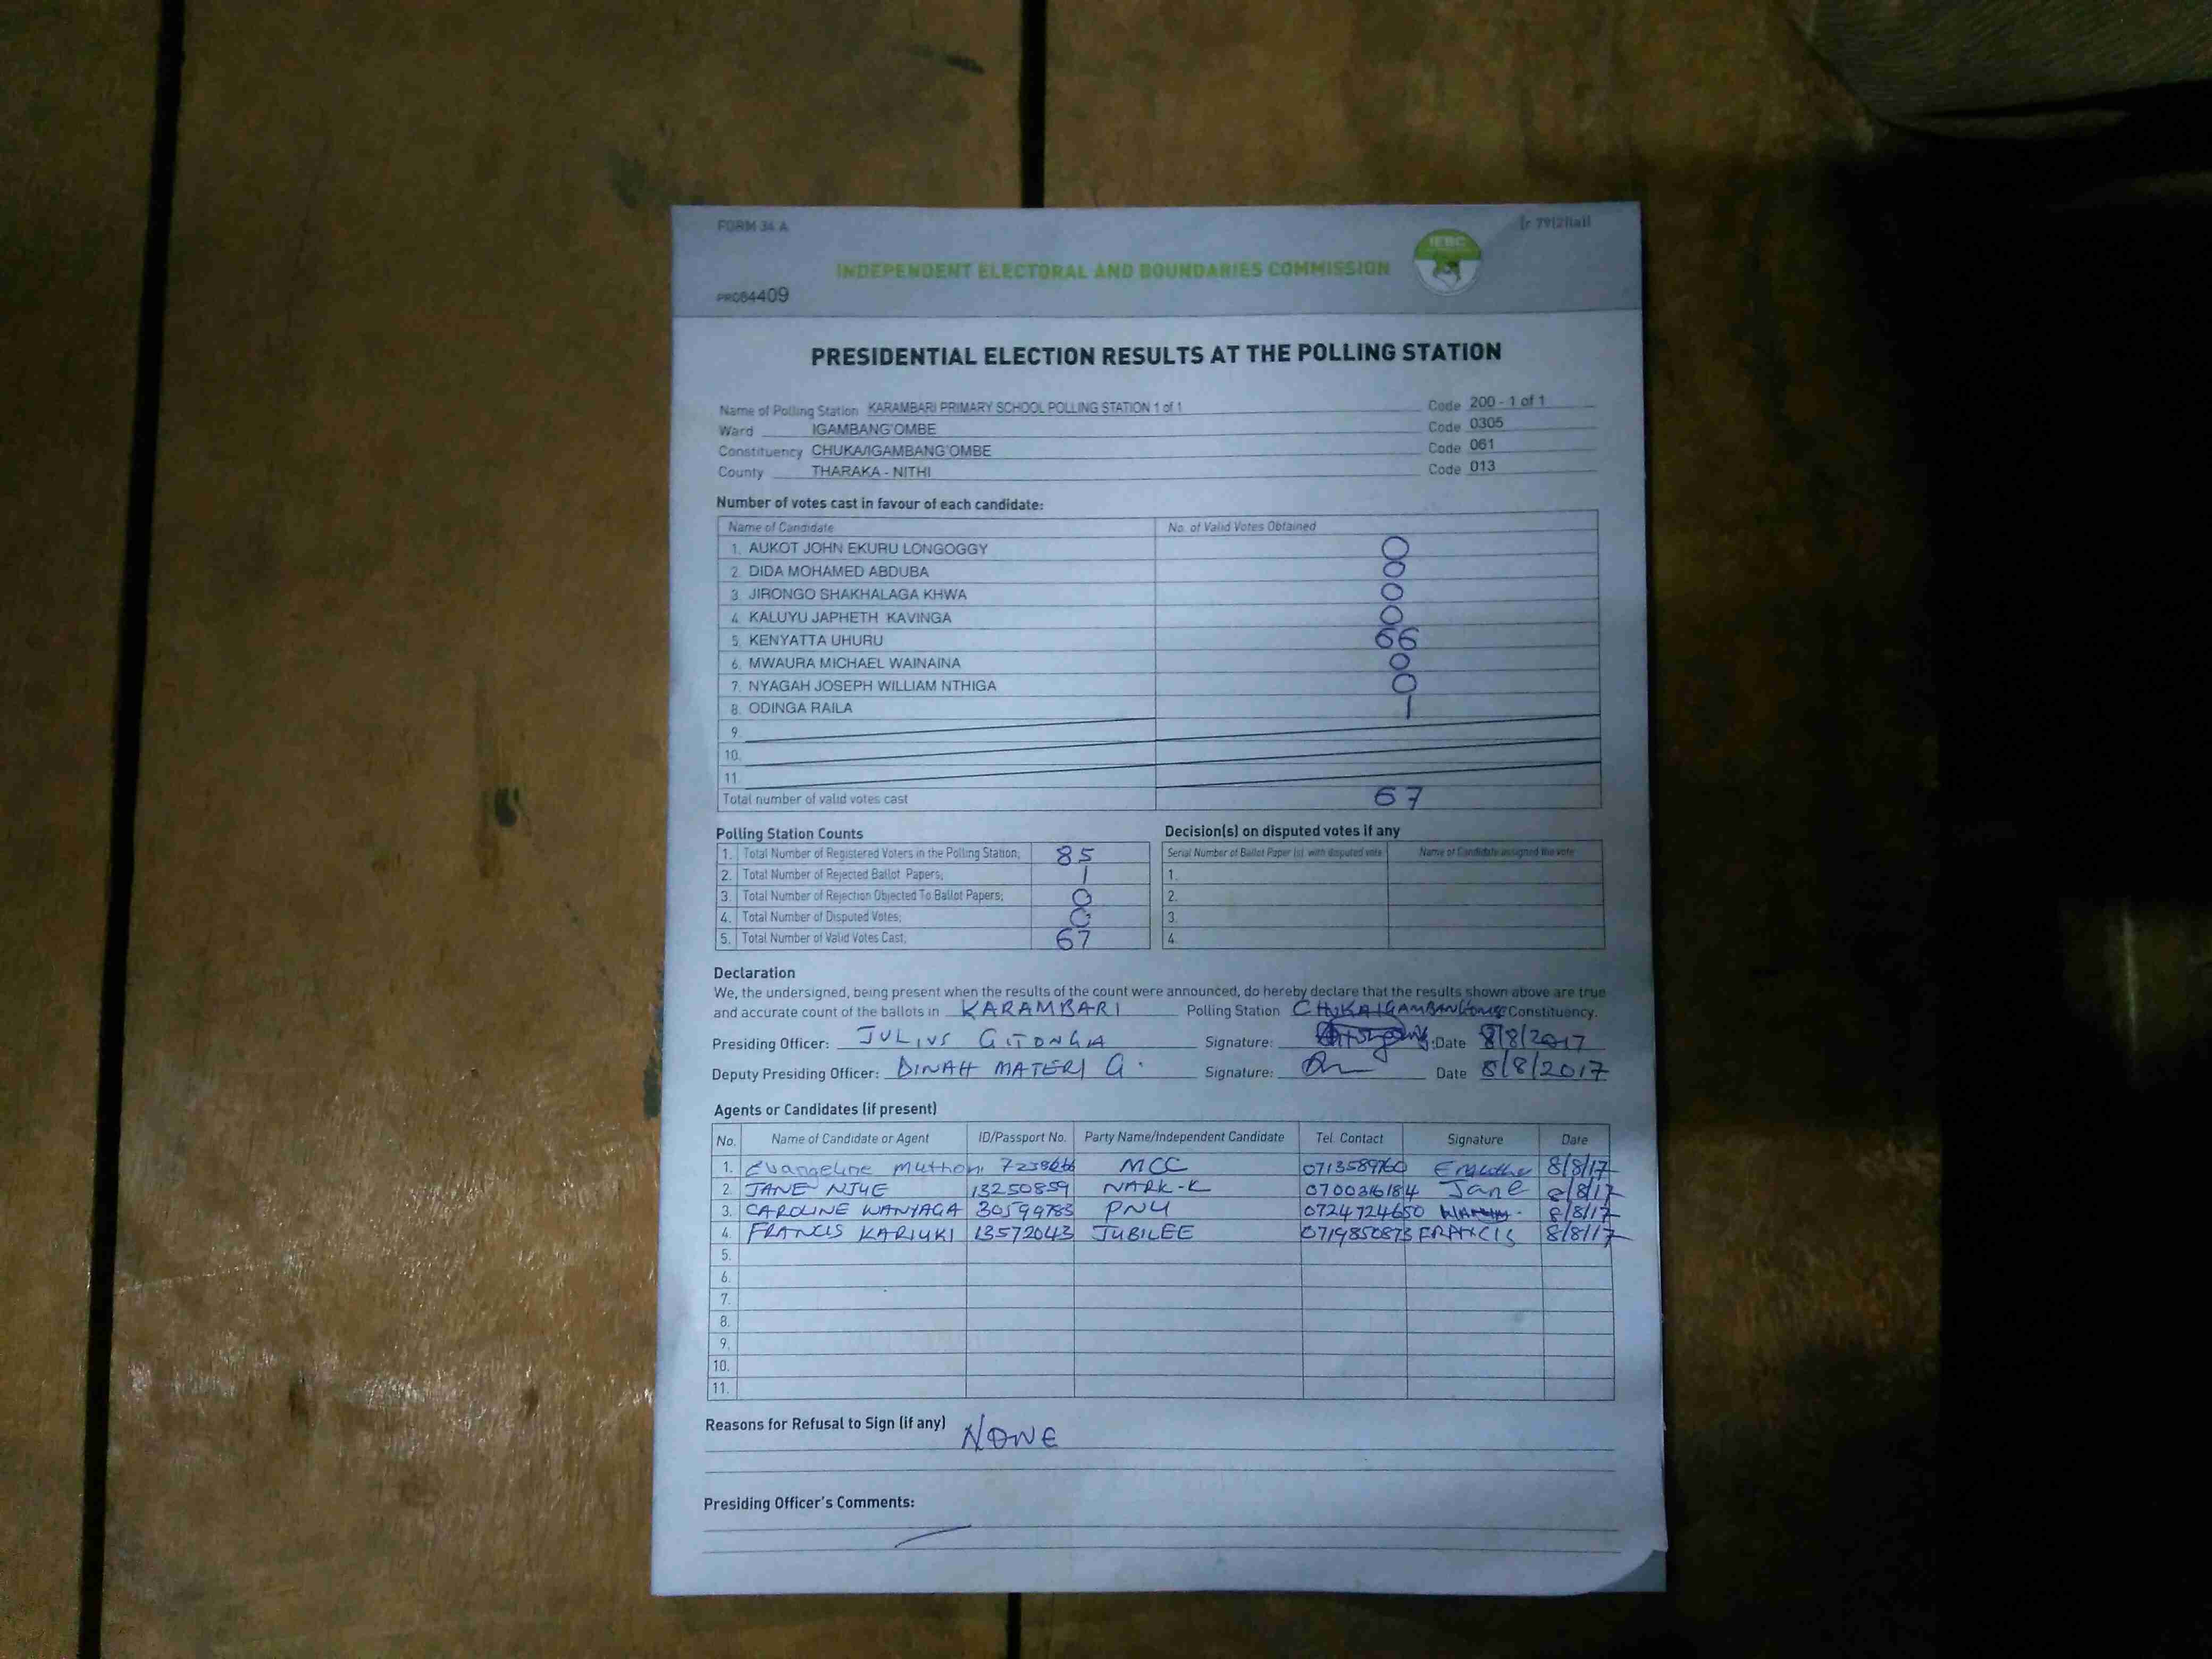 FORM 34 A
[r 79(2)(a)]
INDEPENDENT ELECTORAL AND BOUNDARIES COMMISSION
IEBC
PR084409
PRESIDENTIAL ELECTION RESULTS AT THE POLLING STATION
Name of Polling Station KARAMBARI PRIMARY SCHOOL POLLING STATION 1 of 1 Code 200 - 1 of 1
Ward IGAMBANG'OMBE Code 0305
Constituency CHUKA/IGAMBANG'OMBE Code 061
County THARAKA - NITHI Code 013
Number of votes cast in favour of each candidate:
Name of Candidate No. of Valid Votes Obtained
1. AUKOT JOHN EKURU LONGOGGY 0
2. DIDA MOHAMED ABDUBA 0
3. JIRONGO SHAKHALAGA KHWA 0
4. KALUYU JAPHETH KAVINGA 0
5. KENYATTA UHURU 66
6. MWAURA MICHAEL WAINAINA 0
7. NYAGAH JOSEPH WILLIAM NTHIGA 0
8. ODINGA RAILA 1
9.
10.
11.
Total number of valid votes cast 67
Polling Station Counts
1. Total Number of Registered Voters in the Polling Station; 85
2. Total Number of Rejected Ballot Papers; 1
3. Total Number of Rejection Objected To Ballot Papers; 0
4. Total Number of Disputed Votes; 0
5. Total Number of Valid Votes Cast; 67
Decision(s) on disputed votes if any
Serial Number of Ballot Paper (s) with disputed vote Name of Candidate assigned the vote
1.
2.
3.
4.
Declaration
We, the undersigned, being present when the results of the count were announced, do hereby declare that the results shown above are true
and accurate count of the ballots in KARAMBARI Polling Station Constituency.
Presiding Officer: JULIUS GITONGA Signature: Date 8/8/2017
Deputy Presiding Officer: DINAH MATERI G. Signature: Date 8/8/2017
Agents or Candidates (if present)
No. Name of Candidate or Agent ID/Passport No. Party Name/Independent Candidate Tel. Contact Signature Date
1. Evangeline Muthoni MCC 8/8/17
2. JANE NJUE 13250859 NARK-K 0700316184 Jane 8/8/17
3. CAROLINE WANYAGA 30599783 PNU 0724724650 8/8/17
4. FRANCIS KARIUKI 13572043 JUBILEE 0719850873 FRANCIS 8/8/17
5.
6.
7.
8.
9.
10.
11.
Reasons for Refusal to Sign (if any) NONE
Presiding Officer's Comments: